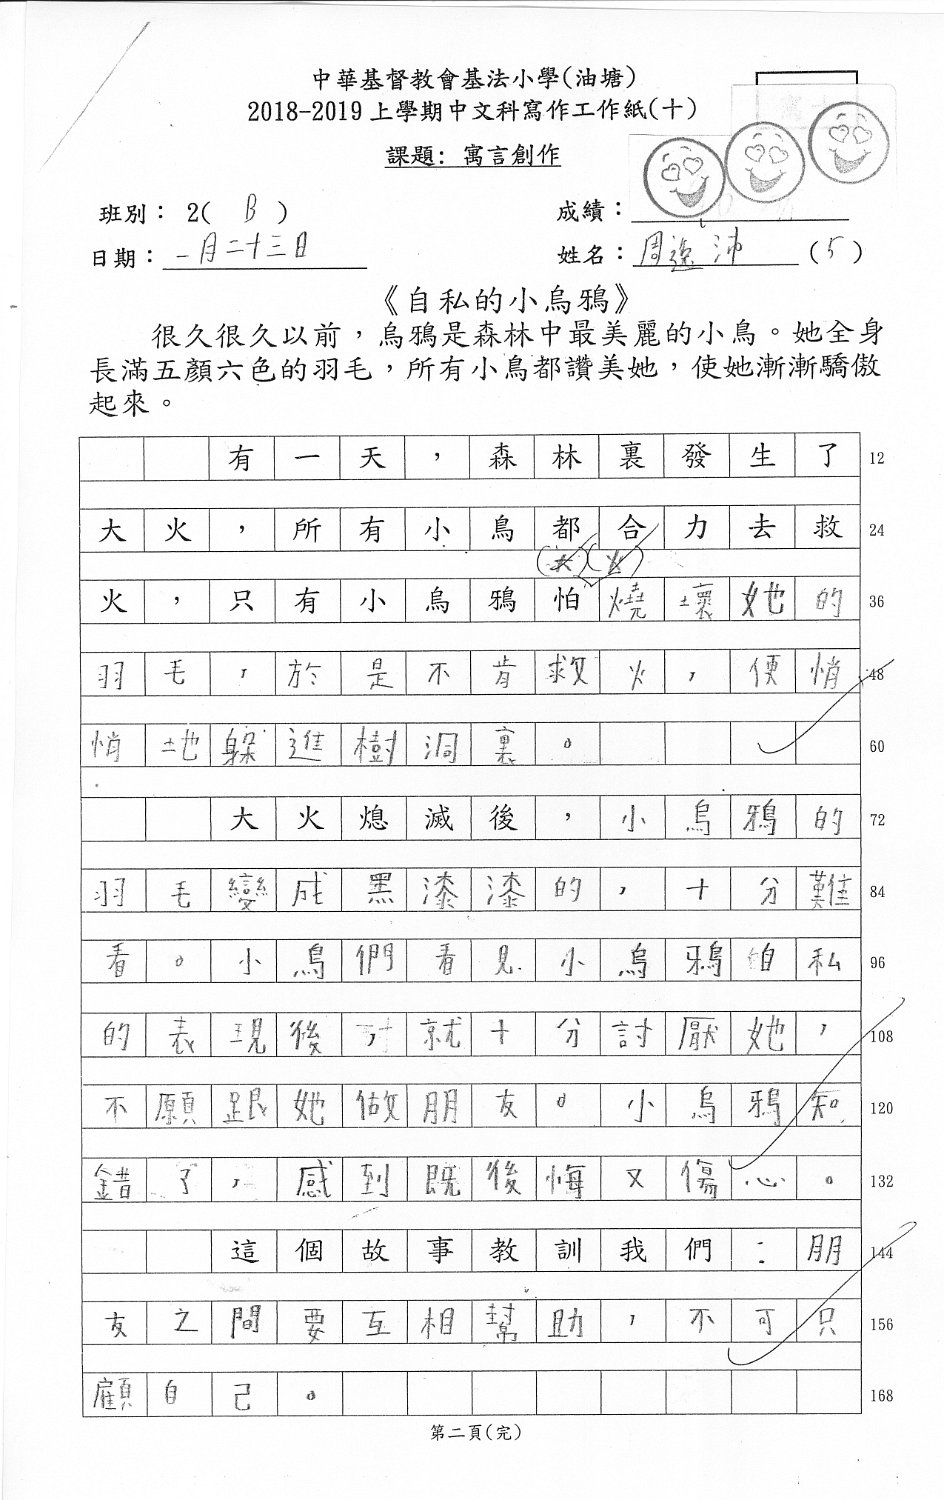 中華基督教會基法小學(油塘)
2018-2019上學期中文科寫作工作紙(十)
課題: 寓言創作
班別： 2( B )
成績：
日期：一月二十三日
姓名：周逸沛 (5)
《自私的小烏鴉》
很久很久以前，烏鴉是森林中最美麗的小鳥。她全身
長滿五顏六色的羽毛，所有小鳥都讚美她，使她漸漸驕傲
起來。
有一天，森林裏發生了 12
大火，所有小鳥都合力去救 24
火，只有小烏鴉怕燒壞她的 36
羽毛，於是不肯救火，便悄 48
悄地躲進樹洞裏。 60
大火熄滅後，小烏鴉的 72
羽毛變成黑漆漆的，十分難 84
看。小鳥們看見小烏鴉自私 96
的表現後，就十分討厭她， 108
不願跟她做朋友。小烏鴉知 120
錯了，感到既後悔又傷心。 132
這個故事教訓我們：朋 144
友之間要互相幫助，不可只 156
顧自己。 168
第二頁(完)